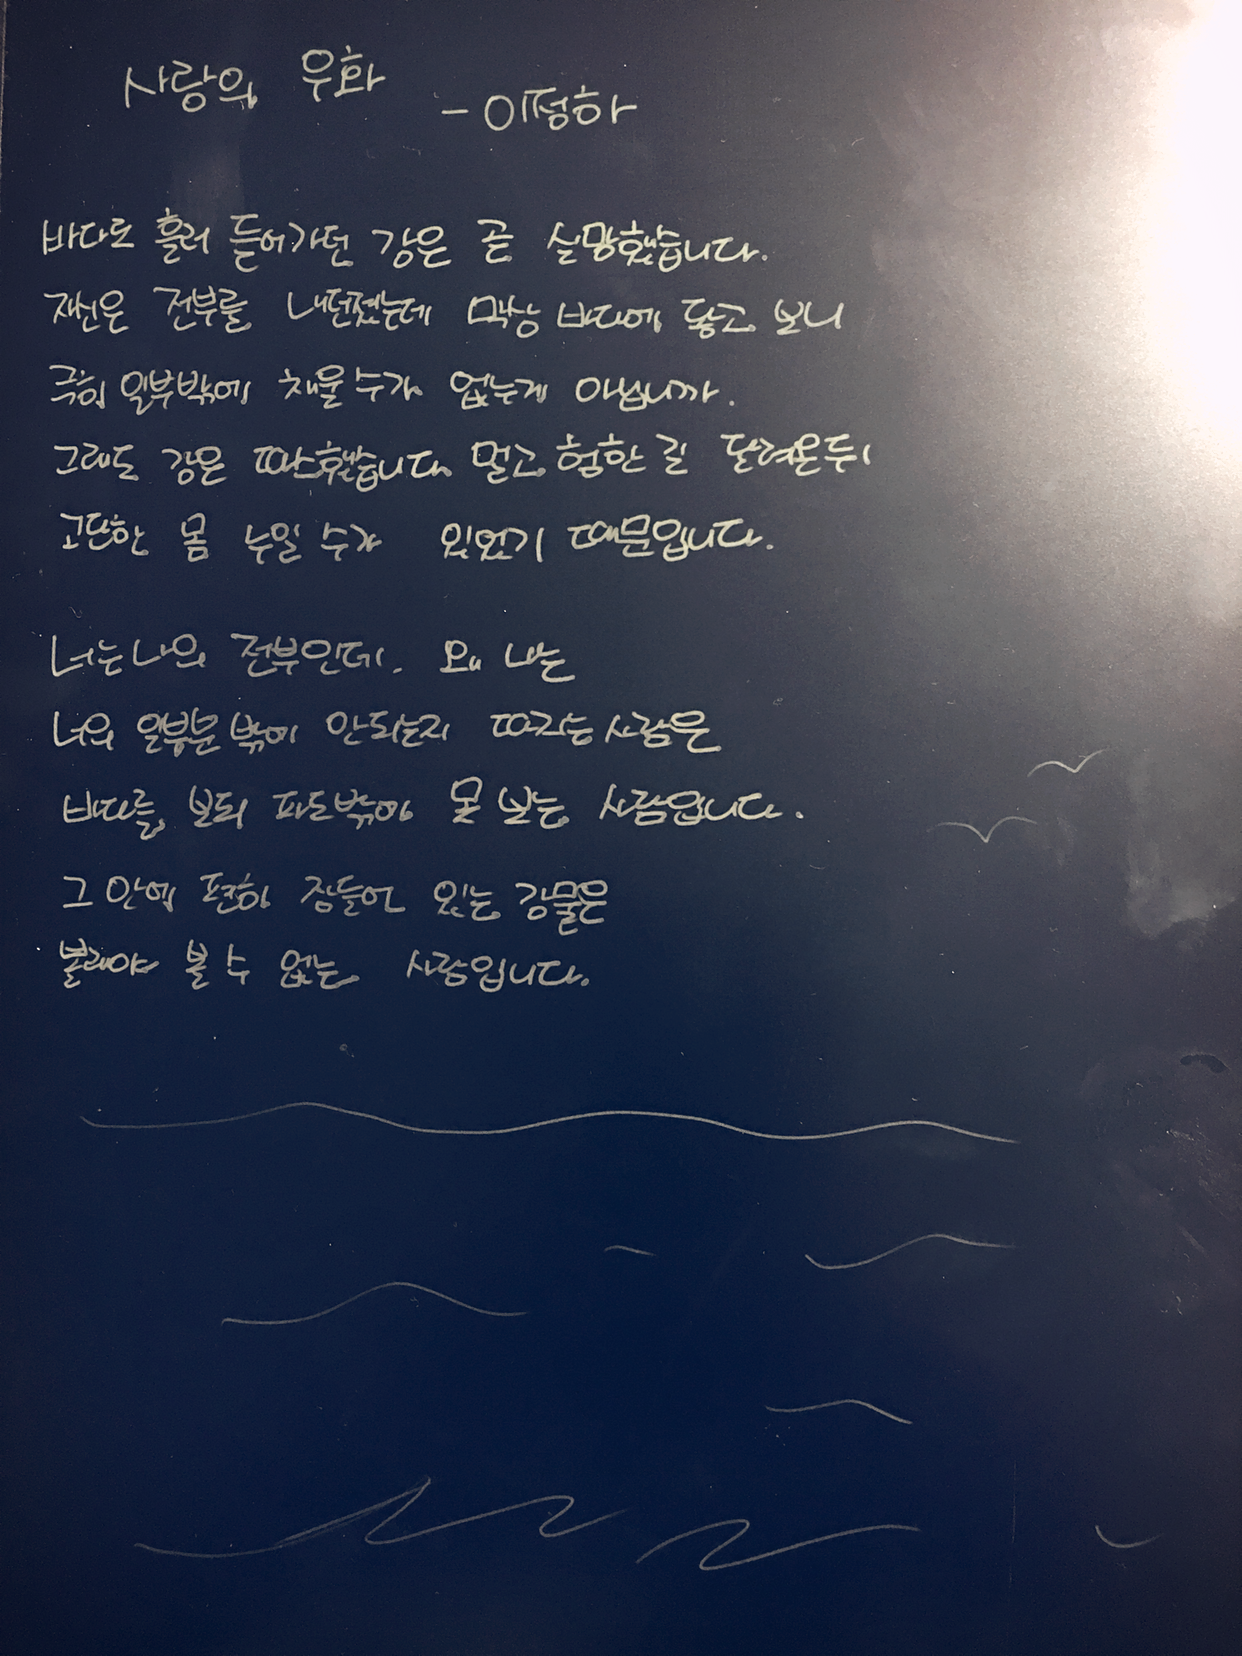 사랑의 우화
- 이정하
바다로 흘러 들어가던 강은 곧 실망했습니다.
자신은 전부를 내던졌는데 막상 바다에 닿고 보니
극히 일부밖에 채울 수가 없는게 아닙니까.
그래도 강은 따스했습니다. 멀고 험한 길 달려온 뒤
고단한 몸 누일 수가 있었기 때문입니다.
너는 나의 전부인데. 왜 나는
너의 일부분 밖에 안되는지 따지는 사람은
바다를 보되 파도밖에 못 보는 사람입니다.
그 안에 편히 잠들어 있는 강물은
볼래야 볼 수 없는 사람입니다.